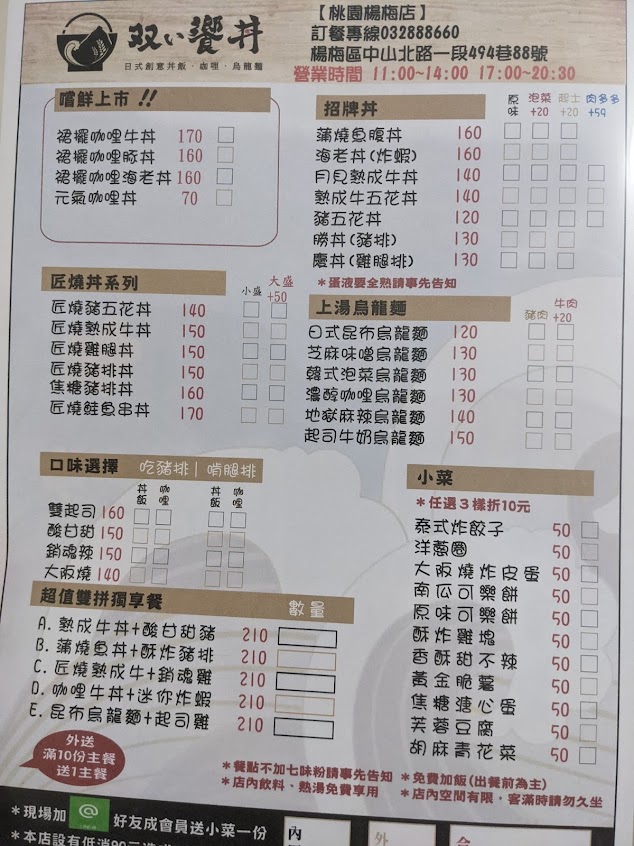 双い饗丼
日式創意丼飯·咖哩·烏龍麵
【桃園楊梅店】
訂餐專線032888660
楊梅區中山北路一段494巷88號
營業時間 11:00~14:00 17:00~20:30
嚐鮮上市 !!
裙擺咖哩牛丼 170
裙擺咖哩豚丼 160
裙擺咖哩海老丼 160
元氣咖哩丼 70
招牌丼 原味 泡菜+20 起士+20 肉多多+59
蒲燒魚腹丼 160
海老丼(炸蝦) 160
月見熟成牛丼 140
熟成牛五花丼 140
豬五花丼 120
勝丼(豬排) 130
慶丼(雞腿排) 130
*蛋液要全熟請事先告知
匠燒丼系列 小盛 大盛+50
匠燒豬五花丼 140
匠燒熟成牛丼 150
匠燒雞腿丼 150
匠燒豬排丼 150
焦糖豬排丼 160
匠燒鮭魚串丼 170
上湯烏龍麵 豬肉 牛肉+20
日式昆布烏龍麵 120
芝麻味噌烏龍麵 130
韓式泡菜烏龍麵 130
濃醇咖哩烏龍麵 130
地獄麻辣烏龍麵 140
起司牛奶烏龍麵 150
口味選擇 吃豬排 | 啃腿排
丼飯 咖哩 丼飯 咖哩
雙起司 160
酸甘甜 150
銷魂辣 150
大阪燒 140
超值雙拼獨享餐 數量
A. 熟成牛丼+酸甘甜豬 210
B. 蒲燒魚丼+酥炸豬排 210
C. 匠燒熟成牛+銷魂雞 210
D. 咖哩牛丼+迷你炸蝦 210
E. 昆布烏龍麵+起司雞 210
小菜
*任選3樣折10元
泰式炸餃子 50
洋蔥圈 50
大阪燒炸皮蛋 50
南瓜可樂餅 50
原味可樂餅 50
酥炸雞塊 50
香酥甜不辣 50
黃金脆薯 50
焦糖溏心蛋 50
芙蓉豆腐 50
胡麻青花菜 50
外送
滿10份主餐
送1主餐
*餐點不加七味粉請事先告知 *免費加飯(出餐前為主)
*店內飲料、熱湯免費享用 *店內空間有限，客滿時請勿久坐
*現場加 @ 好友成會員送小菜一份
*本店設有低消90元
內 外 合